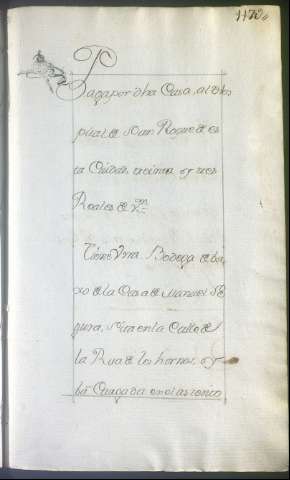 1170
Paga por dha Casa, al Hos
pital de San Roque de es
ta Ciudad, treinta, y tres
Reales de Vn
Tiene Vna Bodega de ba
xo de la Casa de Manuel Se
gura, sita en la Calle de
la Rua de los hornos, y